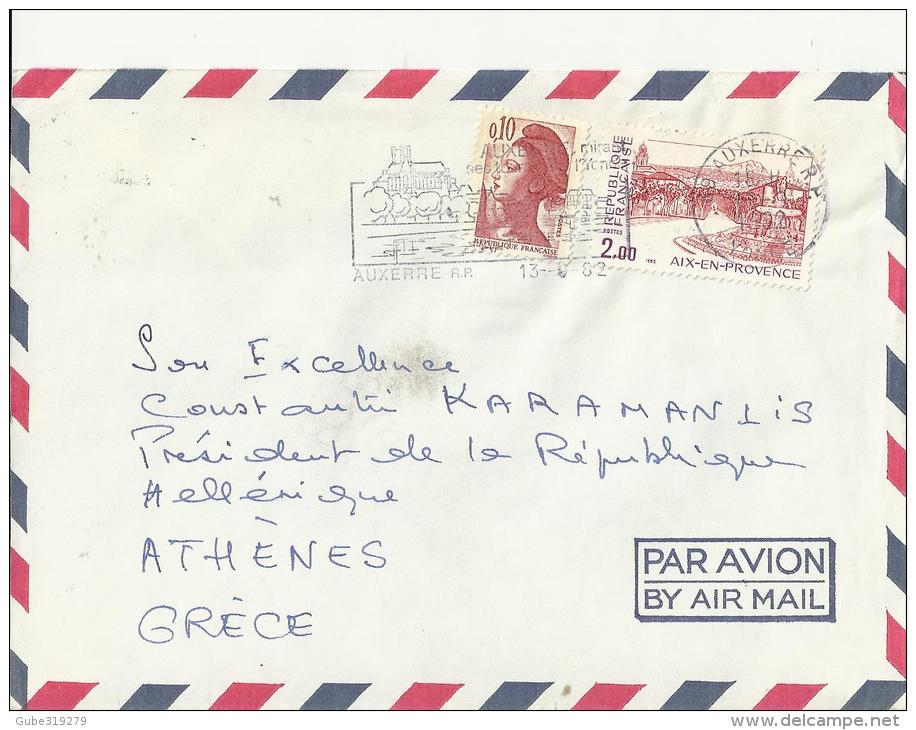 0,10
REPUBLIQUE FRANÇAISE
REPUBLIQUE
FRANÇAISE
POSTES
2,00
1982
AIX-EN-PROVENCE
AUXERRE R.P.
AUXERRE R.P. 13- -82
Son Excellence
Constantin KARAMANLIS
Président de la République
Hellénique
ATHÈNES
GRÈCE
PAR AVION
BY AIR MAIL
Gube319279
www.delcampe.net